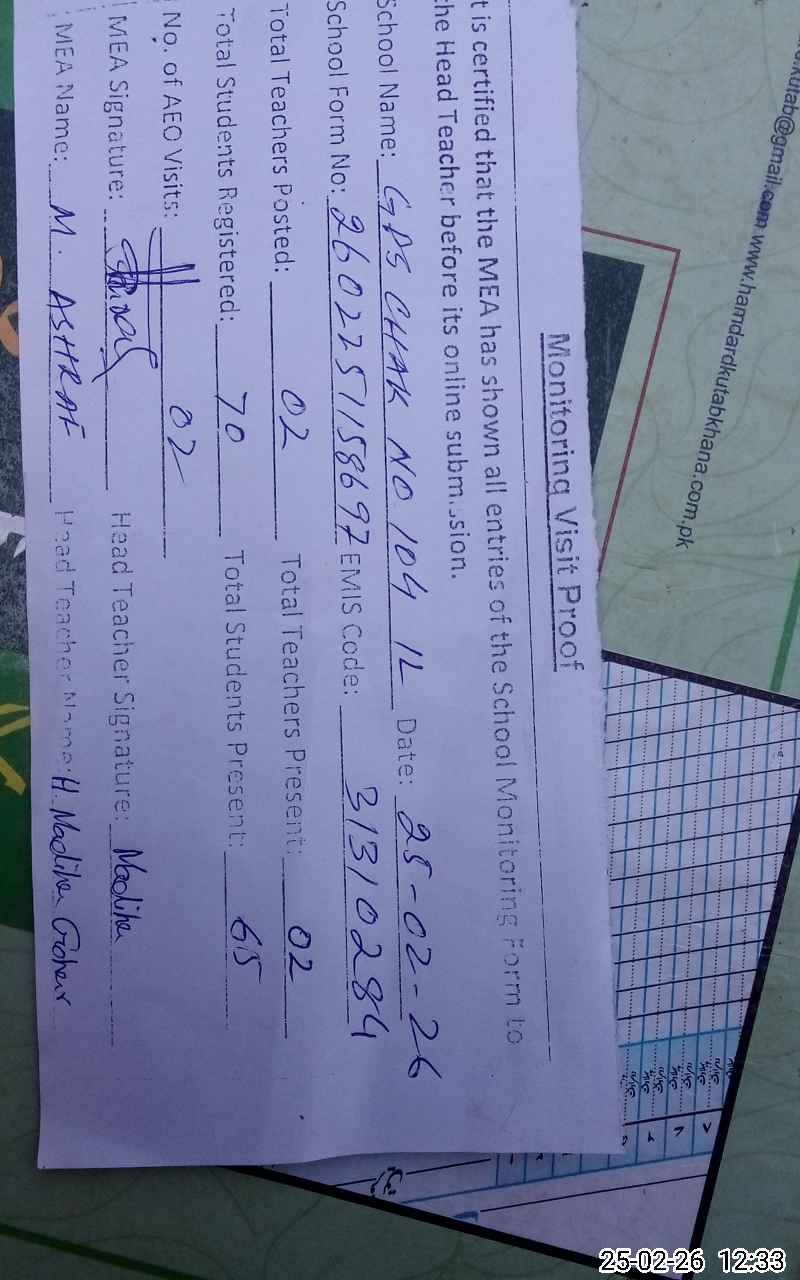 Monitoring Visit Proof
t is certified that the MEA has shown all entries of the School Monitoring Form to
the Head Teacher before its online submission.
School Name: GPS CHAK NO 104 1L Date: 25-02-26
School Form No: 2602251158697 EMIS Code: 31310284
Total Teachers Posted: 02 Total Teachers Present: 02
Total Students Registered: 70 Total Students Present: 65
No. of AEO Visits: 02
MEA Signature: Head Teacher Signature: Madiha
MEA Name: M. ASHRAF Head Teacher Name: H. Madiha Gohar
kutab@gmail.com www.hamdardkutabkhana.com.pk
25-02-26 12:33